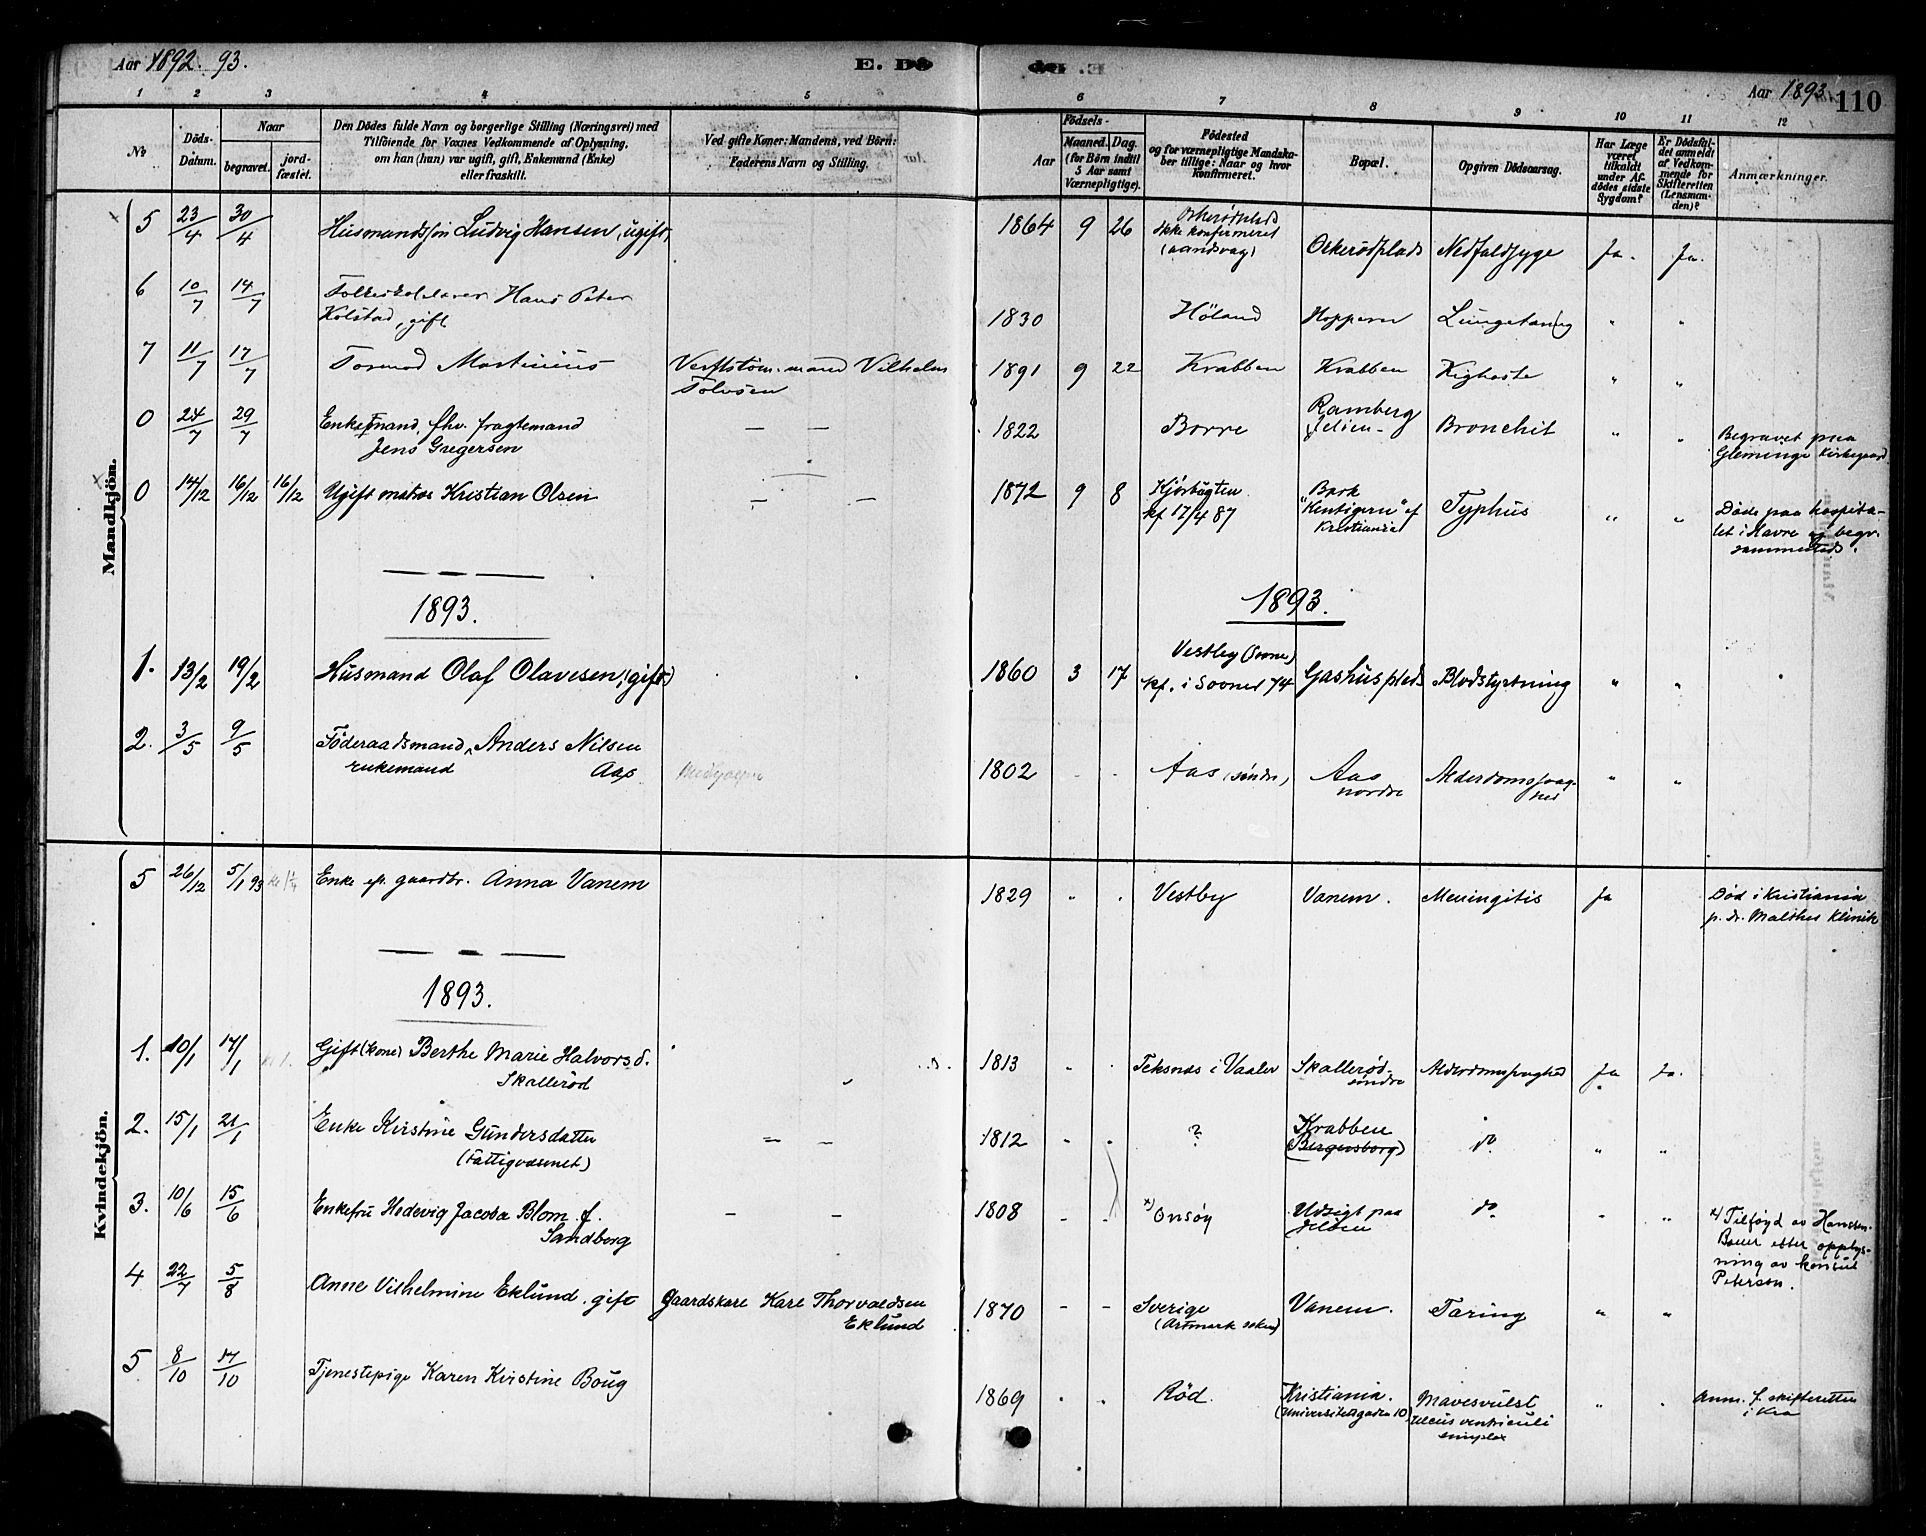 Aar 1892. 93.
E. Dö
Aar 1893.
110
1 2 3 4 5 6 7 8 9 10 11 12
No
Döds-Datum.
Naar
begravet.
jord-fæstet.
Den Dödes fulde Navn og borgerlige Stilling (Næringsvei) med
Tilföiende for Voxnes Vedkommende af Oplysning,
om han (hun) var ugift, gift, Enkemand (Enke)
eller fraskilt.
Ved gifte Koner: Mandens, ved Börn:
Faderens Navn og Stilling.
Födsels-
Aar
Maaned. Dag.
(for Börn indtil
5 Aar samt
Værnepligtige).
Födested
og for værnepligtige Mandska-
ber tillige: Naar og hvor
konfirmeret.
Bopæl.
Opgiven Dödsaarsag.
Har Læge
været
tilkaldt
under Af-
dödes sidste
Sygdom?
Er Dödsfal-
det anmeldt
af Vedkom-
mende for
Skifteretten
(Lensman-
den)?
Anmærkninger.
Mandkjön.
5 23/4 30/4 Husmandssön Ludvig Hansen, ugift, 1864 9 26 Oskerødplads
Ikke konfirmeret
(aandsvag) Oskerödplads Nedfaldssyge Ja. Ja.
6 10/7 14/7 Folkeskolelærer Hans Peter
Kolstad, gift 1830 Höland Hoppern Lungetæring " "
7 11/7 17/7 Tormod Martinius Verftstöm.mand Vilhelm
Tolvsen 1891 9 22 Krabben Krabben Kighoste " "
0 24/7 29/7 Enkemand, fhv. fragtemand
Jens Gregersen — — 1822 Borre Ramberg
Jelöen Bronchit " " Begravet paa
Glemminge Kirkegaard
0 14/12 16/12 16/12 Ugift matros Kristian Olsen — — 1872 9 8
kf 17/4 87 Bark
"Kentigern" af
Kristiania Typhus " " Döde paa hospita-
let i Havre og begr.
sammesteds.
1893.
1893.
1. 13/2 19/2 Husmand Olaf Olavesen, (gift) 1860 3 17 Vestby (Sooner)
kf. i Sooner 74 Gashusplads Blodstyrtning " "
2. 3/5 9/5 Föderaadsmand, Anders Nilsen
enkemand Aas 1802 Aas (söndre) Aas
nordre Alderdomssvag-
hed " "
Kvindekjön.
5 26/12 5/1 93 Enke eft. gaardbr. Anna Vanem 1829 " " Vestby Vanem. Meningitis Ja Död i Kristiania
p. dr. Malthes Klinik
1893.
1. 10/1 17/1 Gift (kone) Berthe Marie Halvorsd.
Skalleröd 1813 " " Teksnæs i Vaaler Skalleröd
söndre Alderdomssvaghed Ja Ja.
2. 15/1 21/1 Enke Kirstine Gundersdatter
(Fattigvæsenet) — — 1812 ? Krabben
(Bergersborg) do " "
3. 10/6 15/6 Enkefru Hedevig Jacoba Blom f.
Sandberg — — 1808 x) Onsöy Udsigt paa
Jelöen do " " x) Tilföyd av Hansten-
Bauer etter opplys-
ning av konsul
Peterson.
4 22/7 5/8 Anne Vilhelmine Eklund, gift Gaardskarl Karl Thorvaldsen
Eklund 1870 Sverige
(Artmark soken) Vanem. Tæring " "
5 8/10 14/10 Tjenestepige Karen Kirstine Boug 1869 Röd. Kristiania.
(Universitetsgaden 10) Mavesvulst
Ulcus ventriculi
simplex " " Anm. f. skifteretten
i Kra